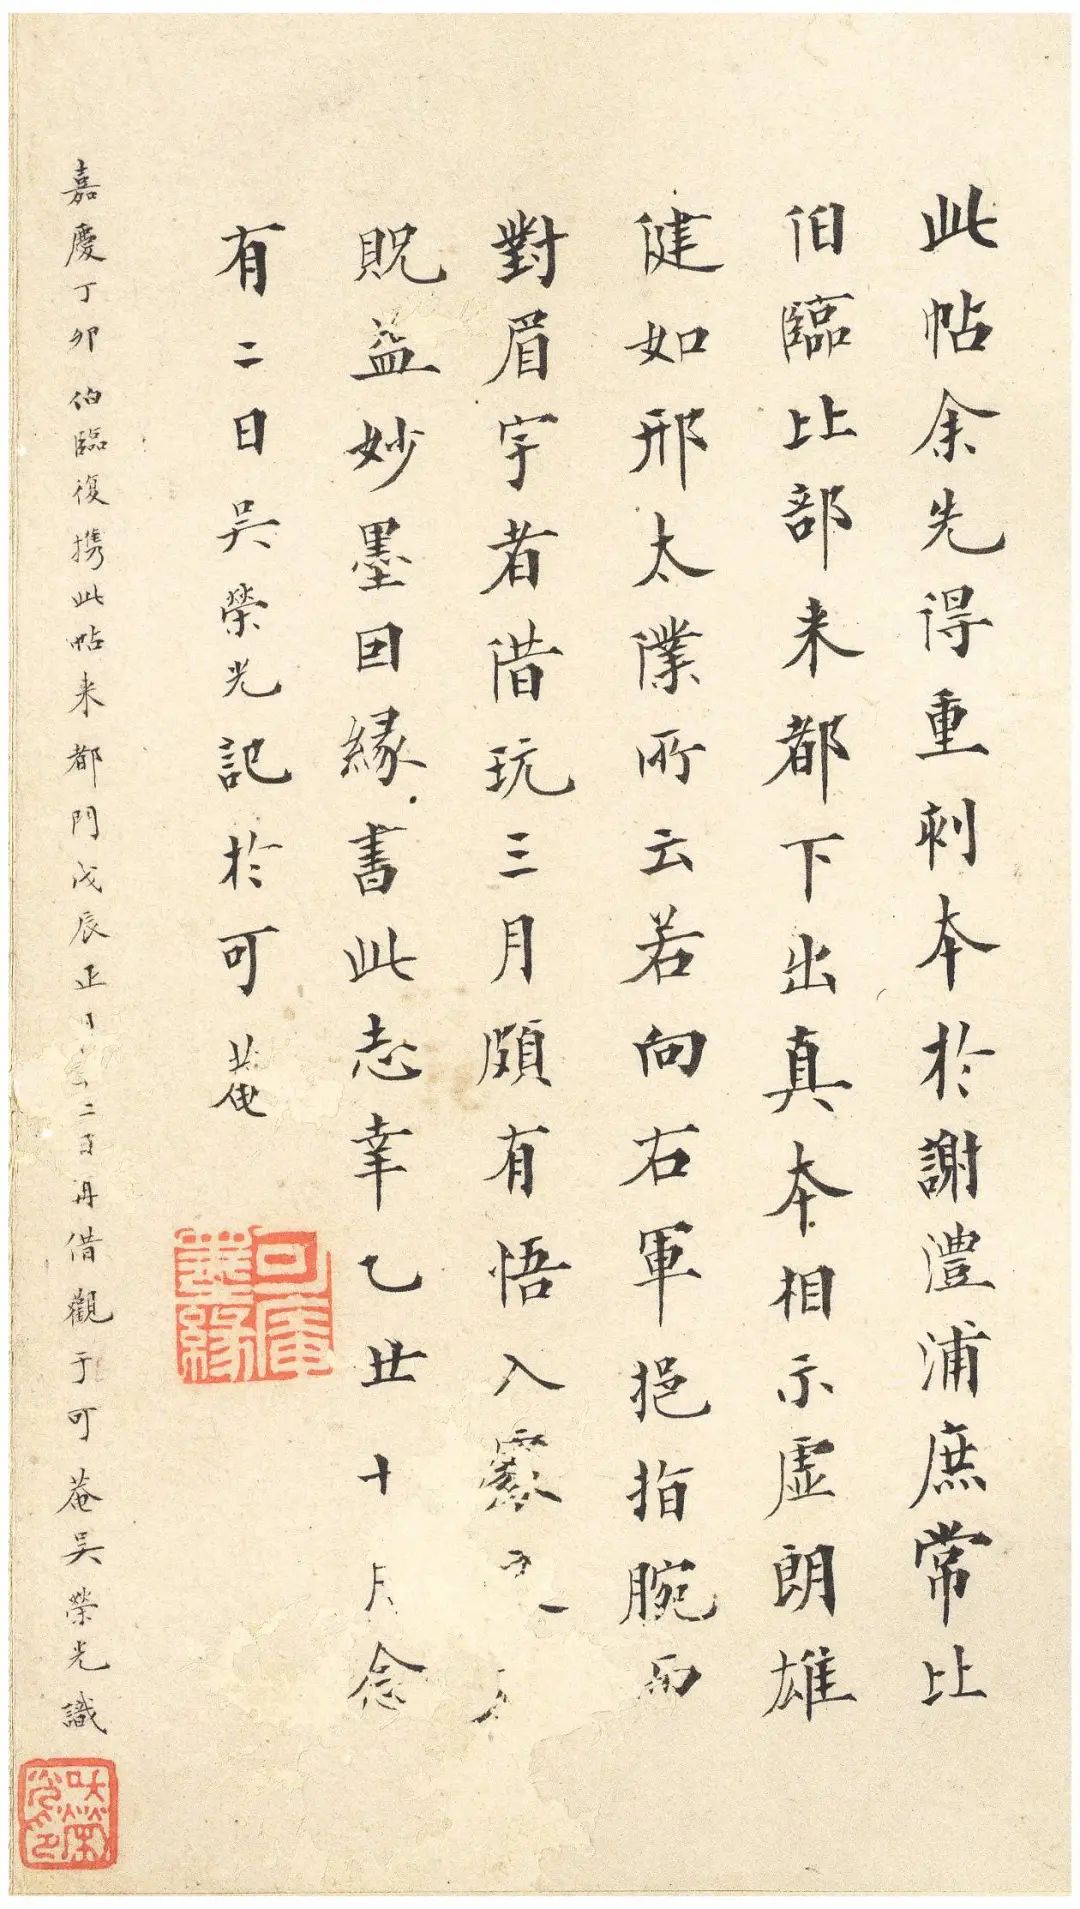 此帖余先得重刺本於謝澧浦庶常比
伯臨比部来都下出真本相示虛朗雄
健如邢太僕所云若向右軍挹指腕而
對眉宇者借玩三月頗有悟入處
貺益妙墨因緣書此志幸乙丑十月念
有二日吳榮光記於可菴
嘉慶丁卯伯臨復携此帖来都門戊辰正月二日再借觀于可菴吳榮光識
可庵墨緣
吳榮光印